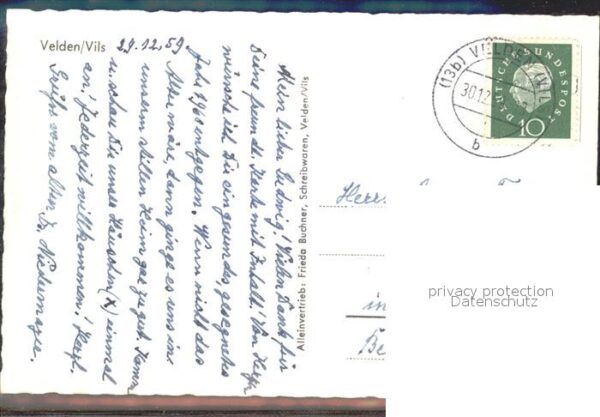 Velden/Vils
29.12.59
Mein lieber Ludwig! Vielen Dank für
Deine freundl. Karte mit Inhalt! Von Herzen
wünsche ich Dir ein gesundes, gesegnetes
Jahr 1960 entgegen. Wenn nicht das
Alter wäre, dann ginge es uns in
unserm stillen Heim gar zu gut. Komm
u. schau Dir unser Häuschen (X) einmal
an! Jederzeit willkommen! Herzl.
Grüße vom alten Niedermayer.
Alleinvertrieb: Frieda Buchner, Schreibwaren, Velden/Vils
(13b) VELDEN
30.12
b
DEUTSCHE BUNDESPOST
10
Herrn
in
privacy protection
Datenschutz